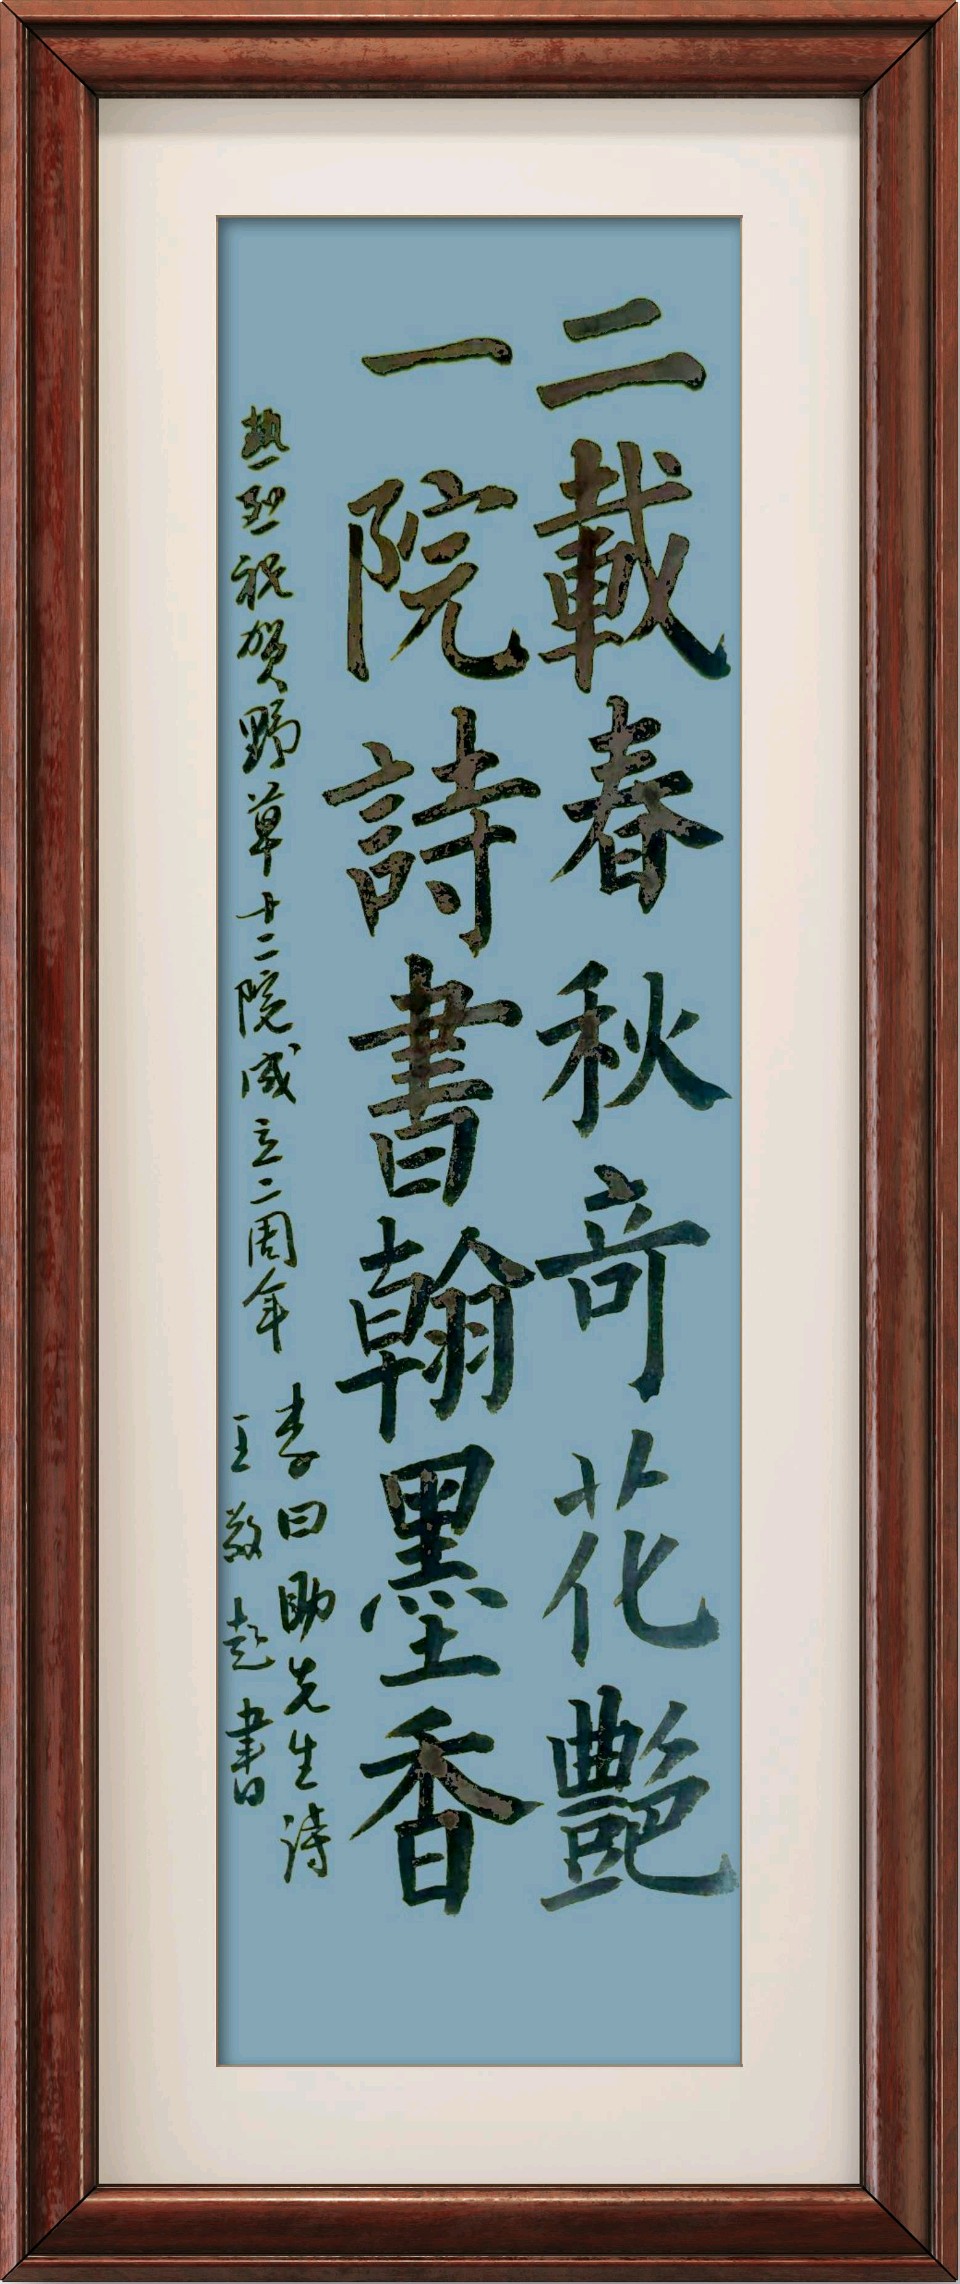 二載春秋奇花艷
一院詩書翰墨香
热烈祝贺野草十二院成立二周年
李曰助先生诗
王敬起書